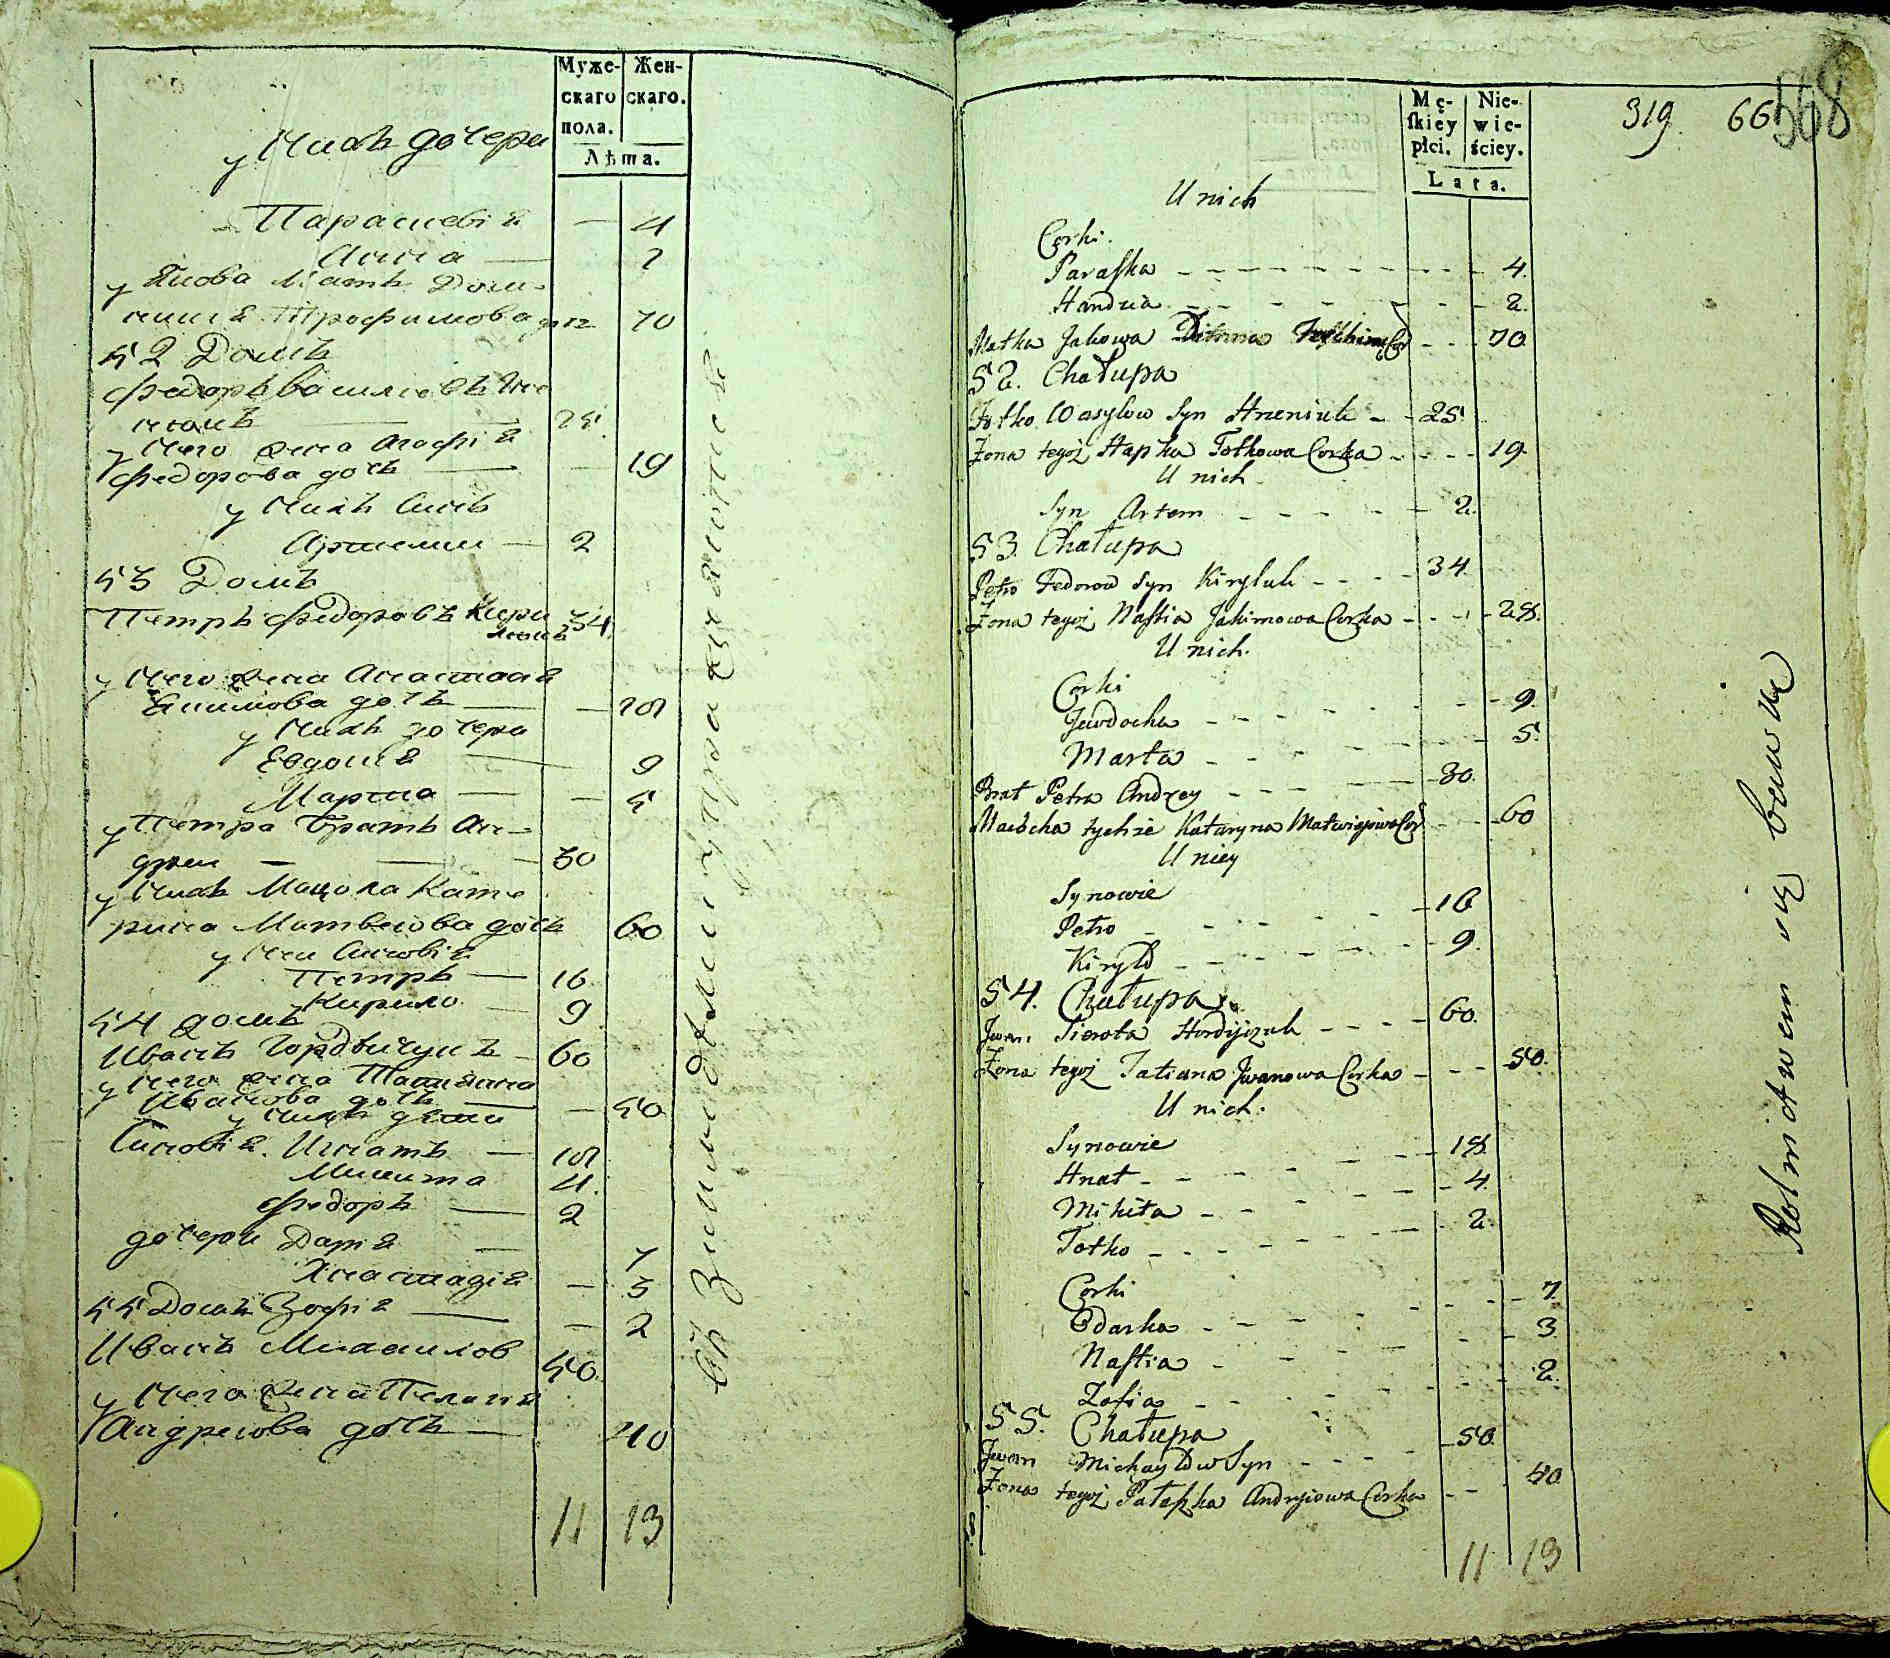 Муже-
скаго
пола.
Жен-
скаго.
Лѣта.
у нихъ дочери
Параскевія — 4
Анна — 2
у Якова Мать Доми-
Трофимова дочь 70
52 Домъ
Федоръ Василіовъ Гне-
нюкъ — 25
у него жена Агафія
Федорова дочь — 19
у нихъ Синъ
Артемии — 2
53 Домъ
Петръ Федоровъ Кири
люкъ 34
у него жена Анастасія
Якимова дочь — 28
у нихъ дочери
Евдокія — 9
Марта — 5
у Петра Братъ Ан-
дреи — 30
у нихъ Мацоха Кате
рина Матвеіова дочь 60
у неи Синовія
Петръ — 16
Кирило — 9
54 домъ
Иванъ Гордѣичукъ — 60
у него жена Татіяна
Иванова дочь — 50
у нихъ дѣти
Синовія. Игнатъ — 18
Микита 4
Федоръ — 2
дочери Дарія — 7
Анастасія — 3
55 Домъ Зофія — 2
Иванъ Михаилов 50
у него жена Пелагія
Андреіова дочь — 40
11 13
Mę-
ſkiey
płci.
Nie-
wie-
ściey.
Lata.
319. 66
568
U nich
Corki.
Paraſka - - - 4.
Handzia - - - 2.
Matka Jakowa - - - 70
52. Chałupa
Fotko Wasylow Syn Hneniuk - - 25.
Żona tegoż Hapka Fotkowa Corka - - - 19.
U nich
Syn Artem - - - 2.
53. Chałupa
Petro Fedorow Syn Kiryluk - - - 34.
Żona tegoż Naſtia Jakimowa Corka - - - 28.
U nich.
Corki
Jewdocha - - - 9.
Marta - - - 5.
Brat Petra Andrzey - - - 30.
Macocha tychże Kataryna Matwiejowa Cor - - - 60
U niey
Synowie
Petro - - - 16
Kiryło - - - 9.
54. Chałupa
Jwan Sierota Hordijczuk - - - 60.
Żona tegoż Tatiana Jwanowa Corka - - - 50.
U nich.
Synowie
Hnat - - - 18.
Mikita - - - 4.
Fotko - - - 2.
Corki
Odarka - - - 7.
Naſtia - - - 3.
Zofia - - - 2.
55. Chałupa
Jwan Michayłow Syn - - - 50.
Żona tegoż Pałażka Andryiowa Corka - - 40.
11 13
Rolnictwem się bawią